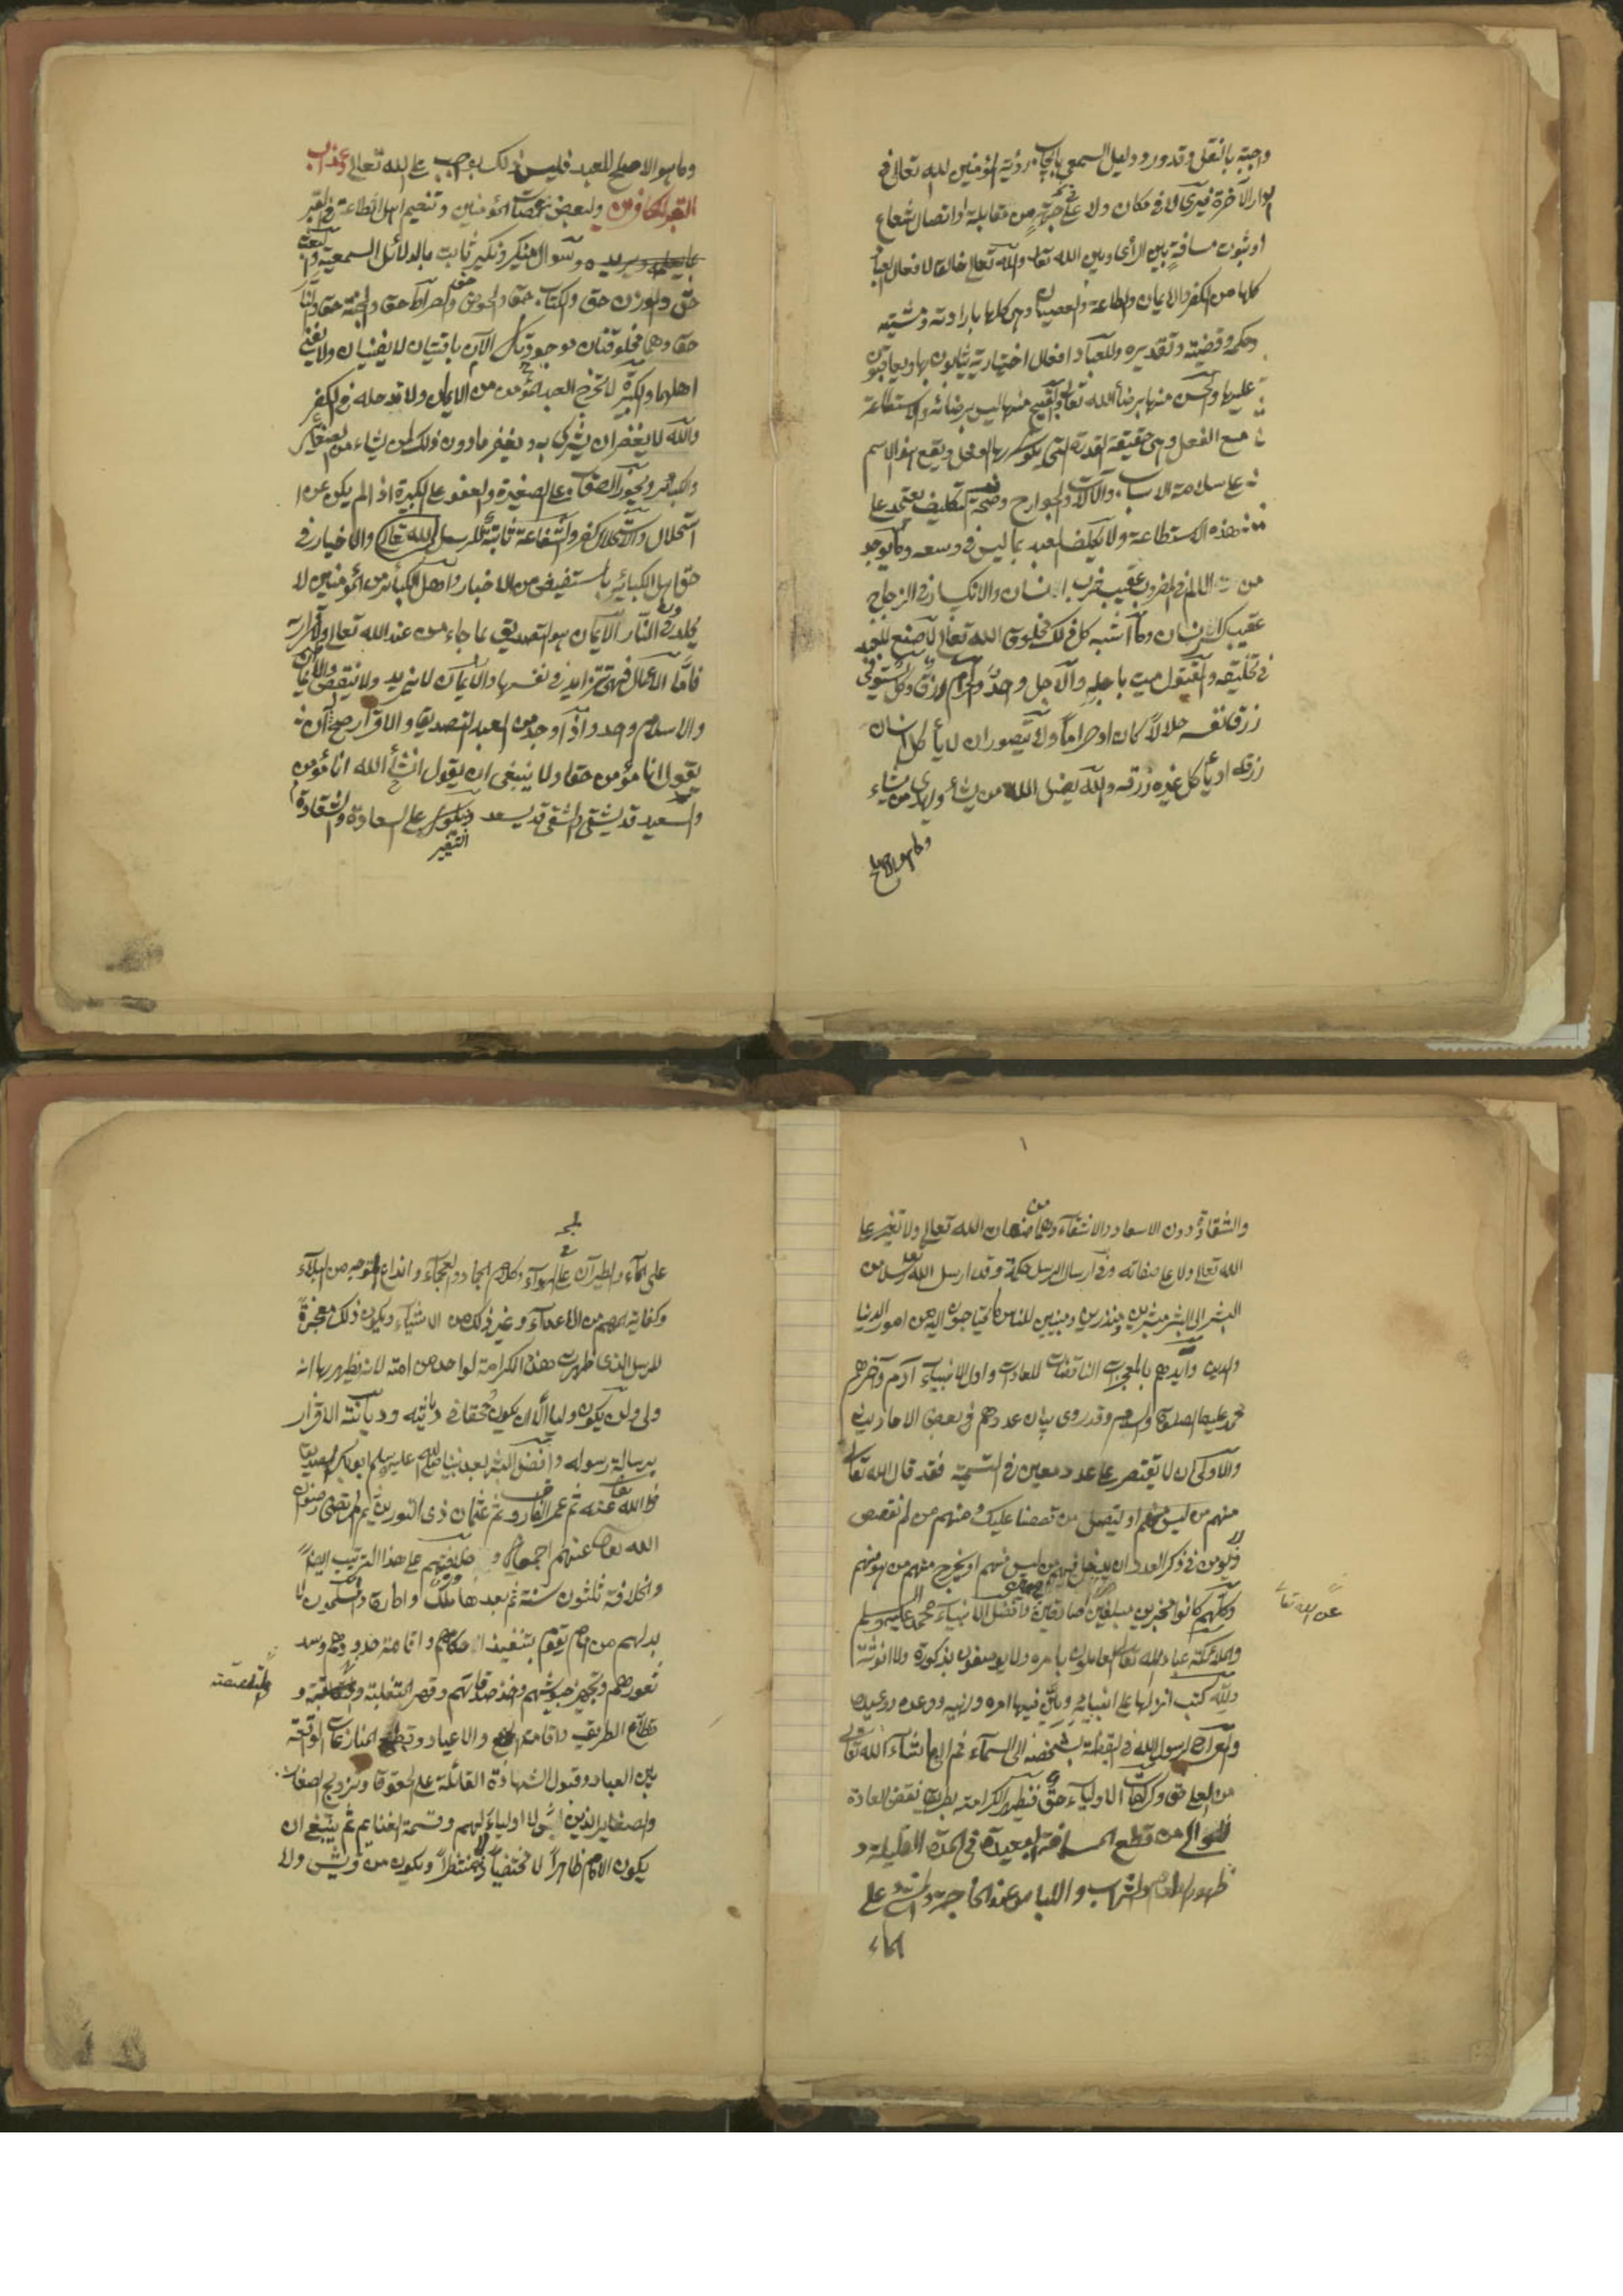 واجبة بالنقل وقد ورد دليل السمعي بايجاب رؤية المؤمنين لله تعالى في
الدار الآخرة فيرى لا في مكان ولا على جهة من مقابلة او اتصال شعاع
او ثبوت مسافة بين الرأى وبين الله تعالى والله تعالى خالق لافعال العباد
كلها من الكفر والايمان والطاعة والعصيان وهى كلها بارادته ومشيته
وحكمه وقضيته وتقديره وللعباد افعال اختيارية يثابون بها ويعاقبون
عليها والحسن منها برضاء الله تعالى والقبيح منها ليس برضائه والاستطاعة
مع الفعل وهى حقيقة القدرة التى يكون بها الفعل ويقع هذا الاسم
على سلامة الاسباب والآلات والجوارح وصحة التكليف يعتمد على
هذه الاستطاعة ولا يكلف العبد بما ليس في وسعه وما يوجد
من الالم في المضروب عقيب ضرب انسان والانكسار في الزجاج
عقيب كسر انسان وما اشبه كل ذلك مخلوق الله تعالى لا صنع للعبد
في تخليقه والمقتول ميت باجله والآجل واحد والحرام رزق وكل يستوفى
رزق نفسه حلالا كان او حراما ولا يتصور ان لا يأكل انسان
رزقه او يأكل غيره رزقه والله يضل الله من يشاء ويهدى من يشاء
وما هو الاصلح
وما هو الاصلح للعبد فليس ذلك بواجب على الله تعالى وعذاب
القبر للكافرين ولبعض عصات المؤمنين وتنعيم اهل الطاعة في القبر
بما يعلمه ويريده وسوال منكر ونكير ثابت بالدلائل السمعية والبعث
حق والوزن حق والكتاب حق والحوض حق والصراط حق والجنة حق والنار
حق وهما مخلوقتان موجودتان الآن باقيتان لا يفنيان ولا يفنى
اهلهما والكبيرة لا تخرج العبد المؤمن من الايمان ولا تدخله في الكفر
والله لا يغفر ان يشرك به ويغفر مادون ذلك لمن يشاء من الصغائر
والكبائر ويجوز العقاب على الصغيرة والعفو على الكبيرة اذا لم يكن عن
استحلال والاستحلال كفر والشفاعة ثابتة للرسل الله تعالى والاخيار في
حق اهل الكبائر بالمستفيض من الاخبار واهل الكبائر من المؤمنين لا
يخلدون في النار الايمان هو التصديق بما جاء من عند الله تعالى والاقرار به
فاما الاعمال فهى تتزايد في نفسها والايمان لا يزيد ولا ينقص والايمان
والاسلام واحد واذا وجد من العبد التصديق والاقرار صح له ان
يقول انا مؤمن حقا ولا ينبغى ان يقول انشأ الله انا مؤمن
والسعيد قد يشقى والشقى قد يسعد ويكون على السعادة والشقاوة
التغير
والشقاوة دون الاسعاد والاشقاء وهما من صفات الله تعالى ولا تغير على
الله تعالى ولا على صفاته وفي ارسال الرسل حكمة وقد ارسل الله تعالى رسلا من
البشر الى البشر مبشرين ومنذرين ومبينين للناس ما يحتاجون اليه من امور الدنيا
والدين وايدهم بالمعجزات الناقضات للعادات واول الانبياء آدم وآخرهم
محمد عليهما الصلوة والسلام وقد روى بيان عددهم في بعض الاحاديث
والاولى ان لا يقتصر على عدد معين في التسمية فقد قال الله تعالى
منهم من قصصنا عليك ومنهم من لم نقصص
ولا يؤمن في ذكر العدد ان يدخل فيهم من ليس منهم او يخرج منهم من هو منهم
وكلهم كانوا مخبرين مبلغين صادقين وافضل الانبياء محمد عليه السلام
عن الله تعالى
والملائكة عباد الله تعالى العاملون بامره ولا يوصفون بذكورة ولا انوثة
ولله كتب انزلها على انبيائه وبين فيها امره ونهيه ووعده ووعيده
والمعراج لرسول الله في اليقظة بشخصه الى السماء ثم الى ما شاء الله تعالى
من العلى حق وكرامات الاولياء حق فتظهر الكرامة بطريق نقض العادة
للولى من قطع المسافة البعيدة في المدة القليلة و
ظهور الطعام والشراب واللباس عند الحاجة والمشى على
الماء
على الماء والطيران على الهواء وكلام الجماد والعجماء واندفاع المتوجه من البلاء
وكفاية المهم من الاعداء وغير ذلك من الاشياء ويكون ذلك معجزة
للرسل الذى ظهرت هذه الكرامة لواحد من امته لانه يظهر بها انه
ولى ولن يكون وليا الا ان يكون محقا في ديانته وديانته الاقرار
برسالة رسوله وافضل البشر بعد نبينا صلى الله عليه وسلم ابو بكر الصديق
رضى الله تعالى عنه ثم عمر الفاروق ثم عثمان ذى النورين ثم المرتضى رضوان
الله تعالى عنهم اجمعين وخلافتهم على هذا الترتيب ايضا
والخلافة ثلثون سنة ثم بعدها ملك وامارة والمسلمون لا
بد لهم من امام يقوم بتنفيذ احكامهم واقامة حدودهم وسد
ثغورهم وتجهيز جيوشهم واخذ صدقاتهم وقهر المتغلبة و
والمتلصصة
قطاع الطريق واقامة الجمع والاعياد وقطع المنازعات الواقعة
بين العباد وقبول الشهادة القائمة على الحقوق وتزويج الصغار
والصغاير الذين لا اولياء لهم وقسمة الغنايم ثم ينبغى ان
يكون الامام ظاهرا لا مختفيا ولا منتظرا ويكون من قريش ولا